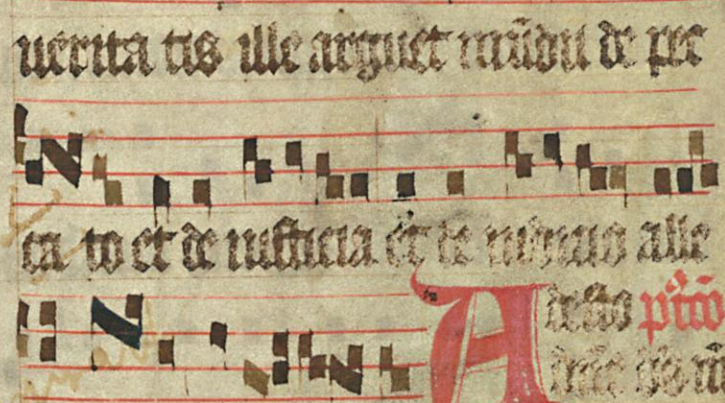 uerita tis ille arguet mūdū de pec
ca to et de iusticia et de iudicio alle
A desto